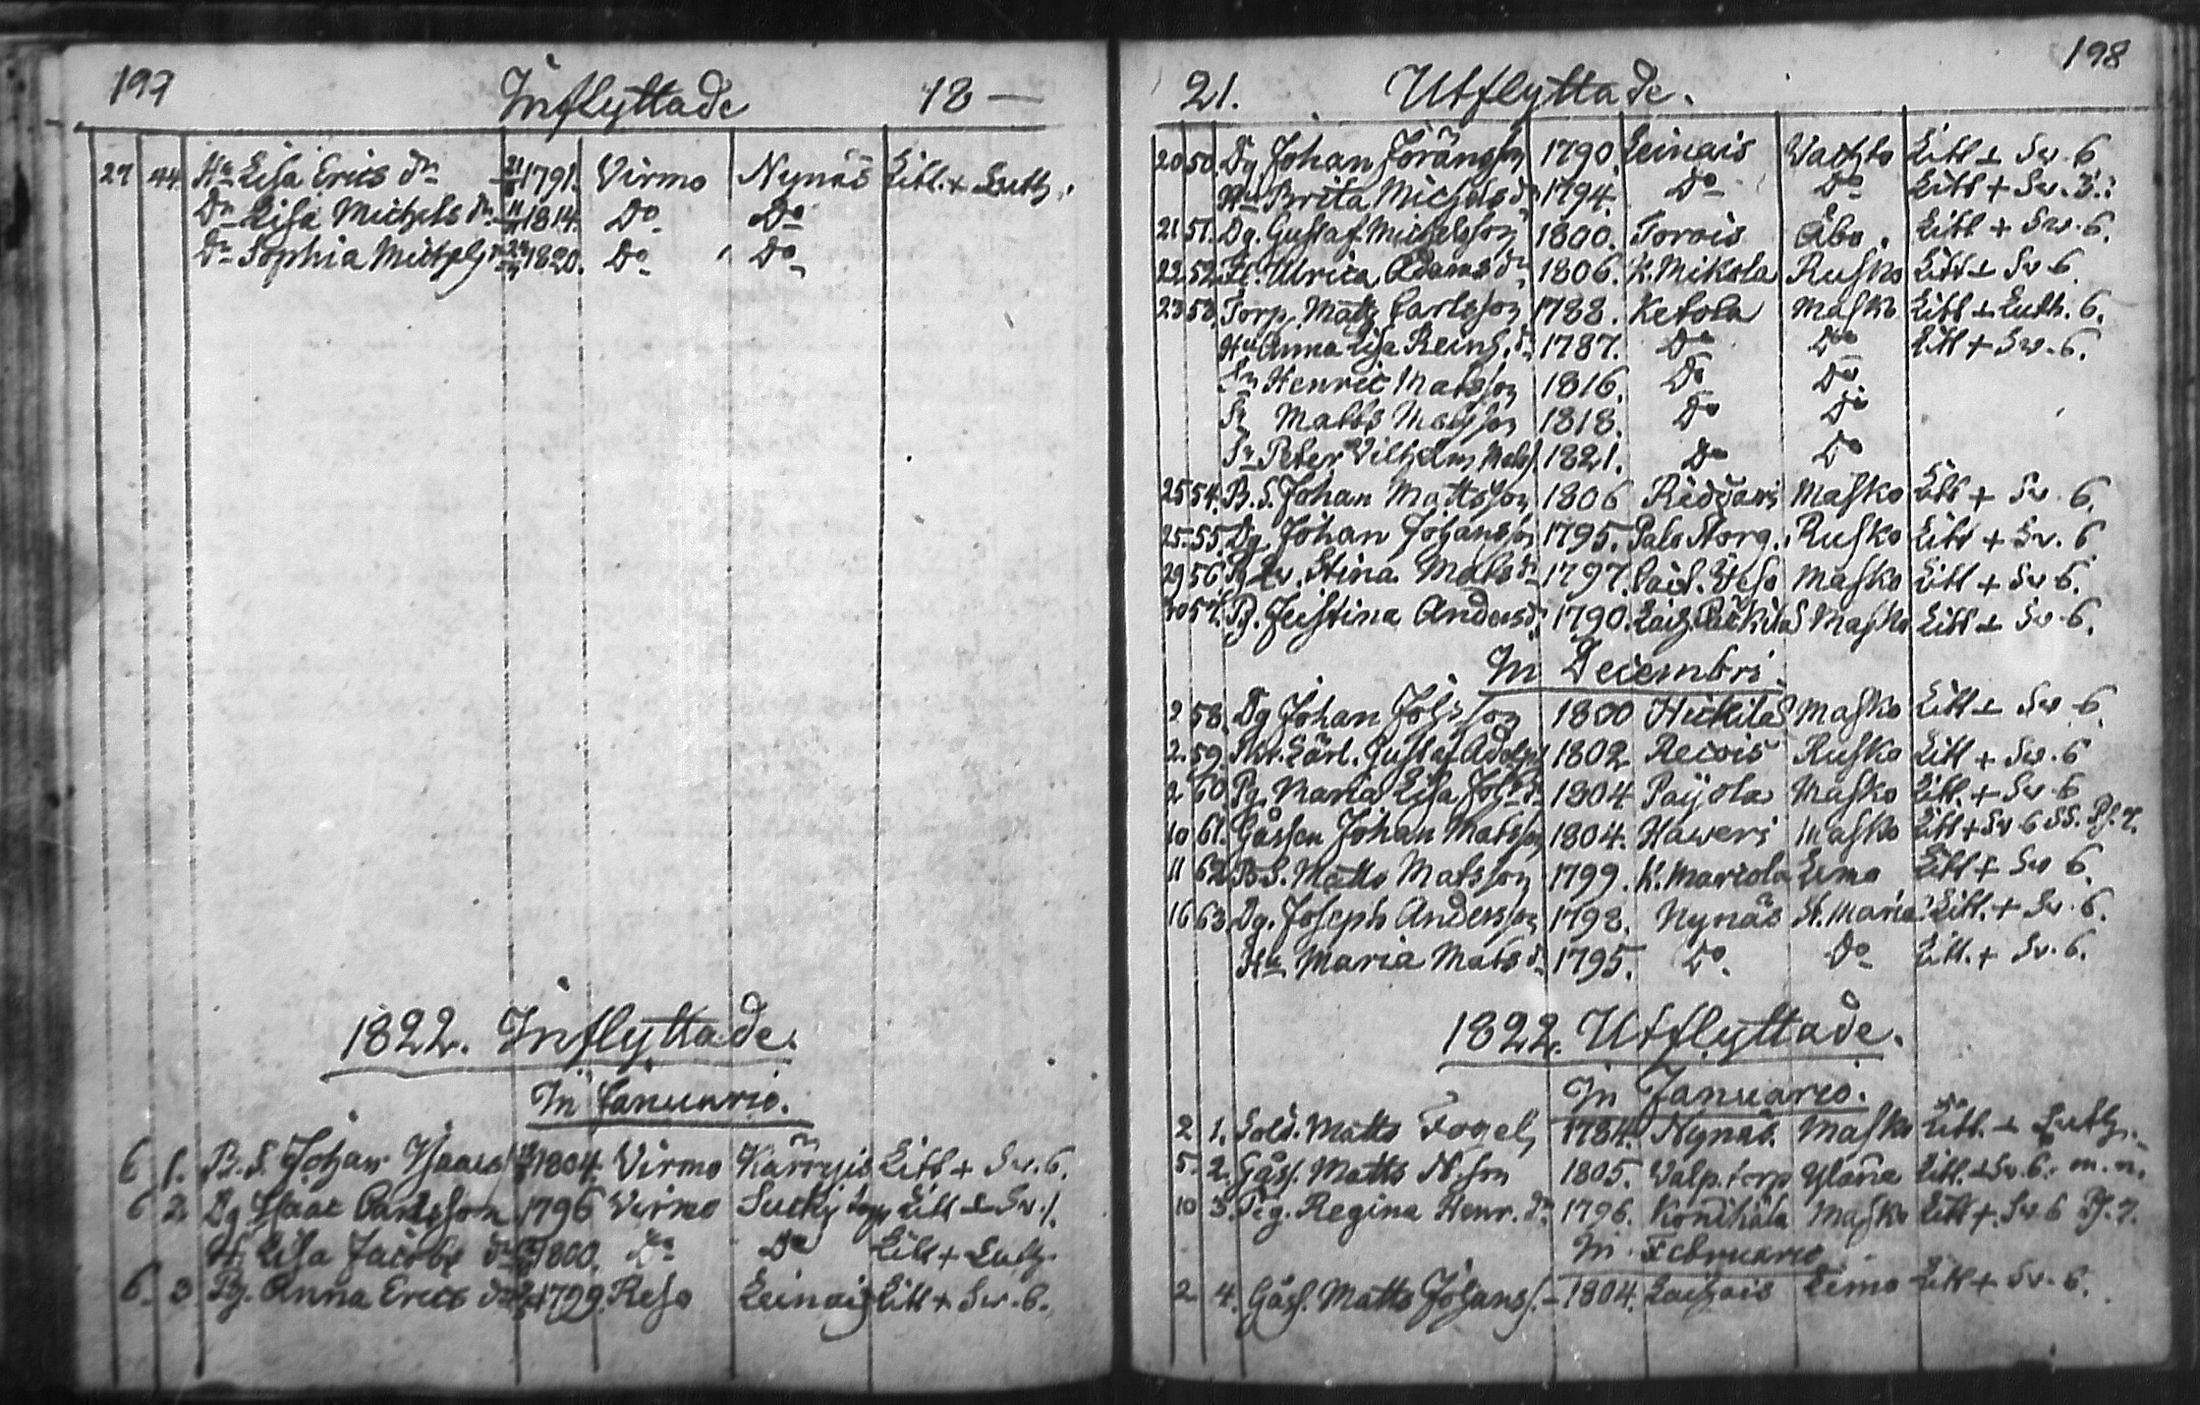 197 Inflyttade 18 —
27 44 Hu Lisa Erics dr 1791. Virmo Nynäs Litt. + Luth.
Dr Lisa Michels dr 11 1814. Do Do
Dr Sophia Michels 1820. Do Do
1822. Inflyttade.
In Januario.
6 1. B. S. Johan Isaacs 1804 Virmo Kärryis Litt + Sv. 6.
6 2 Dg Isaac Carlsson 1796 Virmo Sucki torp Litt + Sv.
H. Lisa Jacobs dr 1800. Do Do Litt + Luth.
6. 3 Pg. Anna Erics dr 1799 Reso Leinais Litt + Sv. 6.
21. Utflyttade. 198
20 50. Dg Johan Göransson 1790. Leinais Wachto Litt + Sv. 6
Hu Brita Michels dr 1794. Do Do Litt + Sv.
21 51. Dg. Gustaf Michelsson 1800. Torois Åbo. Litt + Sv. 6.
22 52. Ulrica Adams dr 1806. K. Mikola Rusko Litt + Sv 6.
23 53. Torp. Matts Carlsson 1788. Ketola Masko Litt + Luth. 6.
Hu Anna Lisa Reinh. dr 1787. Do Do Litt + Sv. 6.
Sn Henric Matsson 1816. Do Do
Sn Matts Matsson 1818. Do Do
Sn Peter Vilhelm Mats. 1821. Do Do
25 54. B. S. Johan Mattsson 1806 Masko Litt + Sv. 6.
25 55. Dg. Johan Johansson 1795. Palo Storg. Rusko Litt + Sv. 6
29 56. Stina Mats dr 1797. Masko Litt + Sv 6.
30 57. Pg. Justina Anders dr 1790. Masko Litt + Sv. 6.
In Decembri.
2 58. Dg Johan Johsson 1800 Hickilas Masko Litt + Sv 6.
2. 59. Skr. Lärl. Gustaf Adolph 1802 Recois Rusko Litt + Sv. 6
2 60. Pg. Maria Lisa Joh. dr 1804 Payola Masko Litt. + Sv 6
10 61. Gåssen Johan Matsson 1804. Haweri Masko Litt + Sv 6 SS. Ps. 7.
11 62. B S. Matts Matsson 1799. K. Mariola Lemo Litt + Sv 6.
16 63. Dg. Joseph Andersson 1798. Nynäs St. Maria Litt. + Sv. 6.
Hu Maria Mats dr 1795. Do. Do Litt. + Sv. 6.
1822. Utflyttade.
In Januario.
2 1. Sold. Matts Fogel 1784. Nynäs Masko Litt. + Luth.
5. 2. Gåss. Matts 1805. Walp. torp Yläne Litt. + Sv. 6. m. m.
10 3. Pig. Regina Henr. dr. 1796. Konihala Masko Litt + Sv. 6 Ps. 7.
In Februario
2 4. Gåss. Matts Johanss. – 1804. Laihais Lemo Litt + Sv. 6.